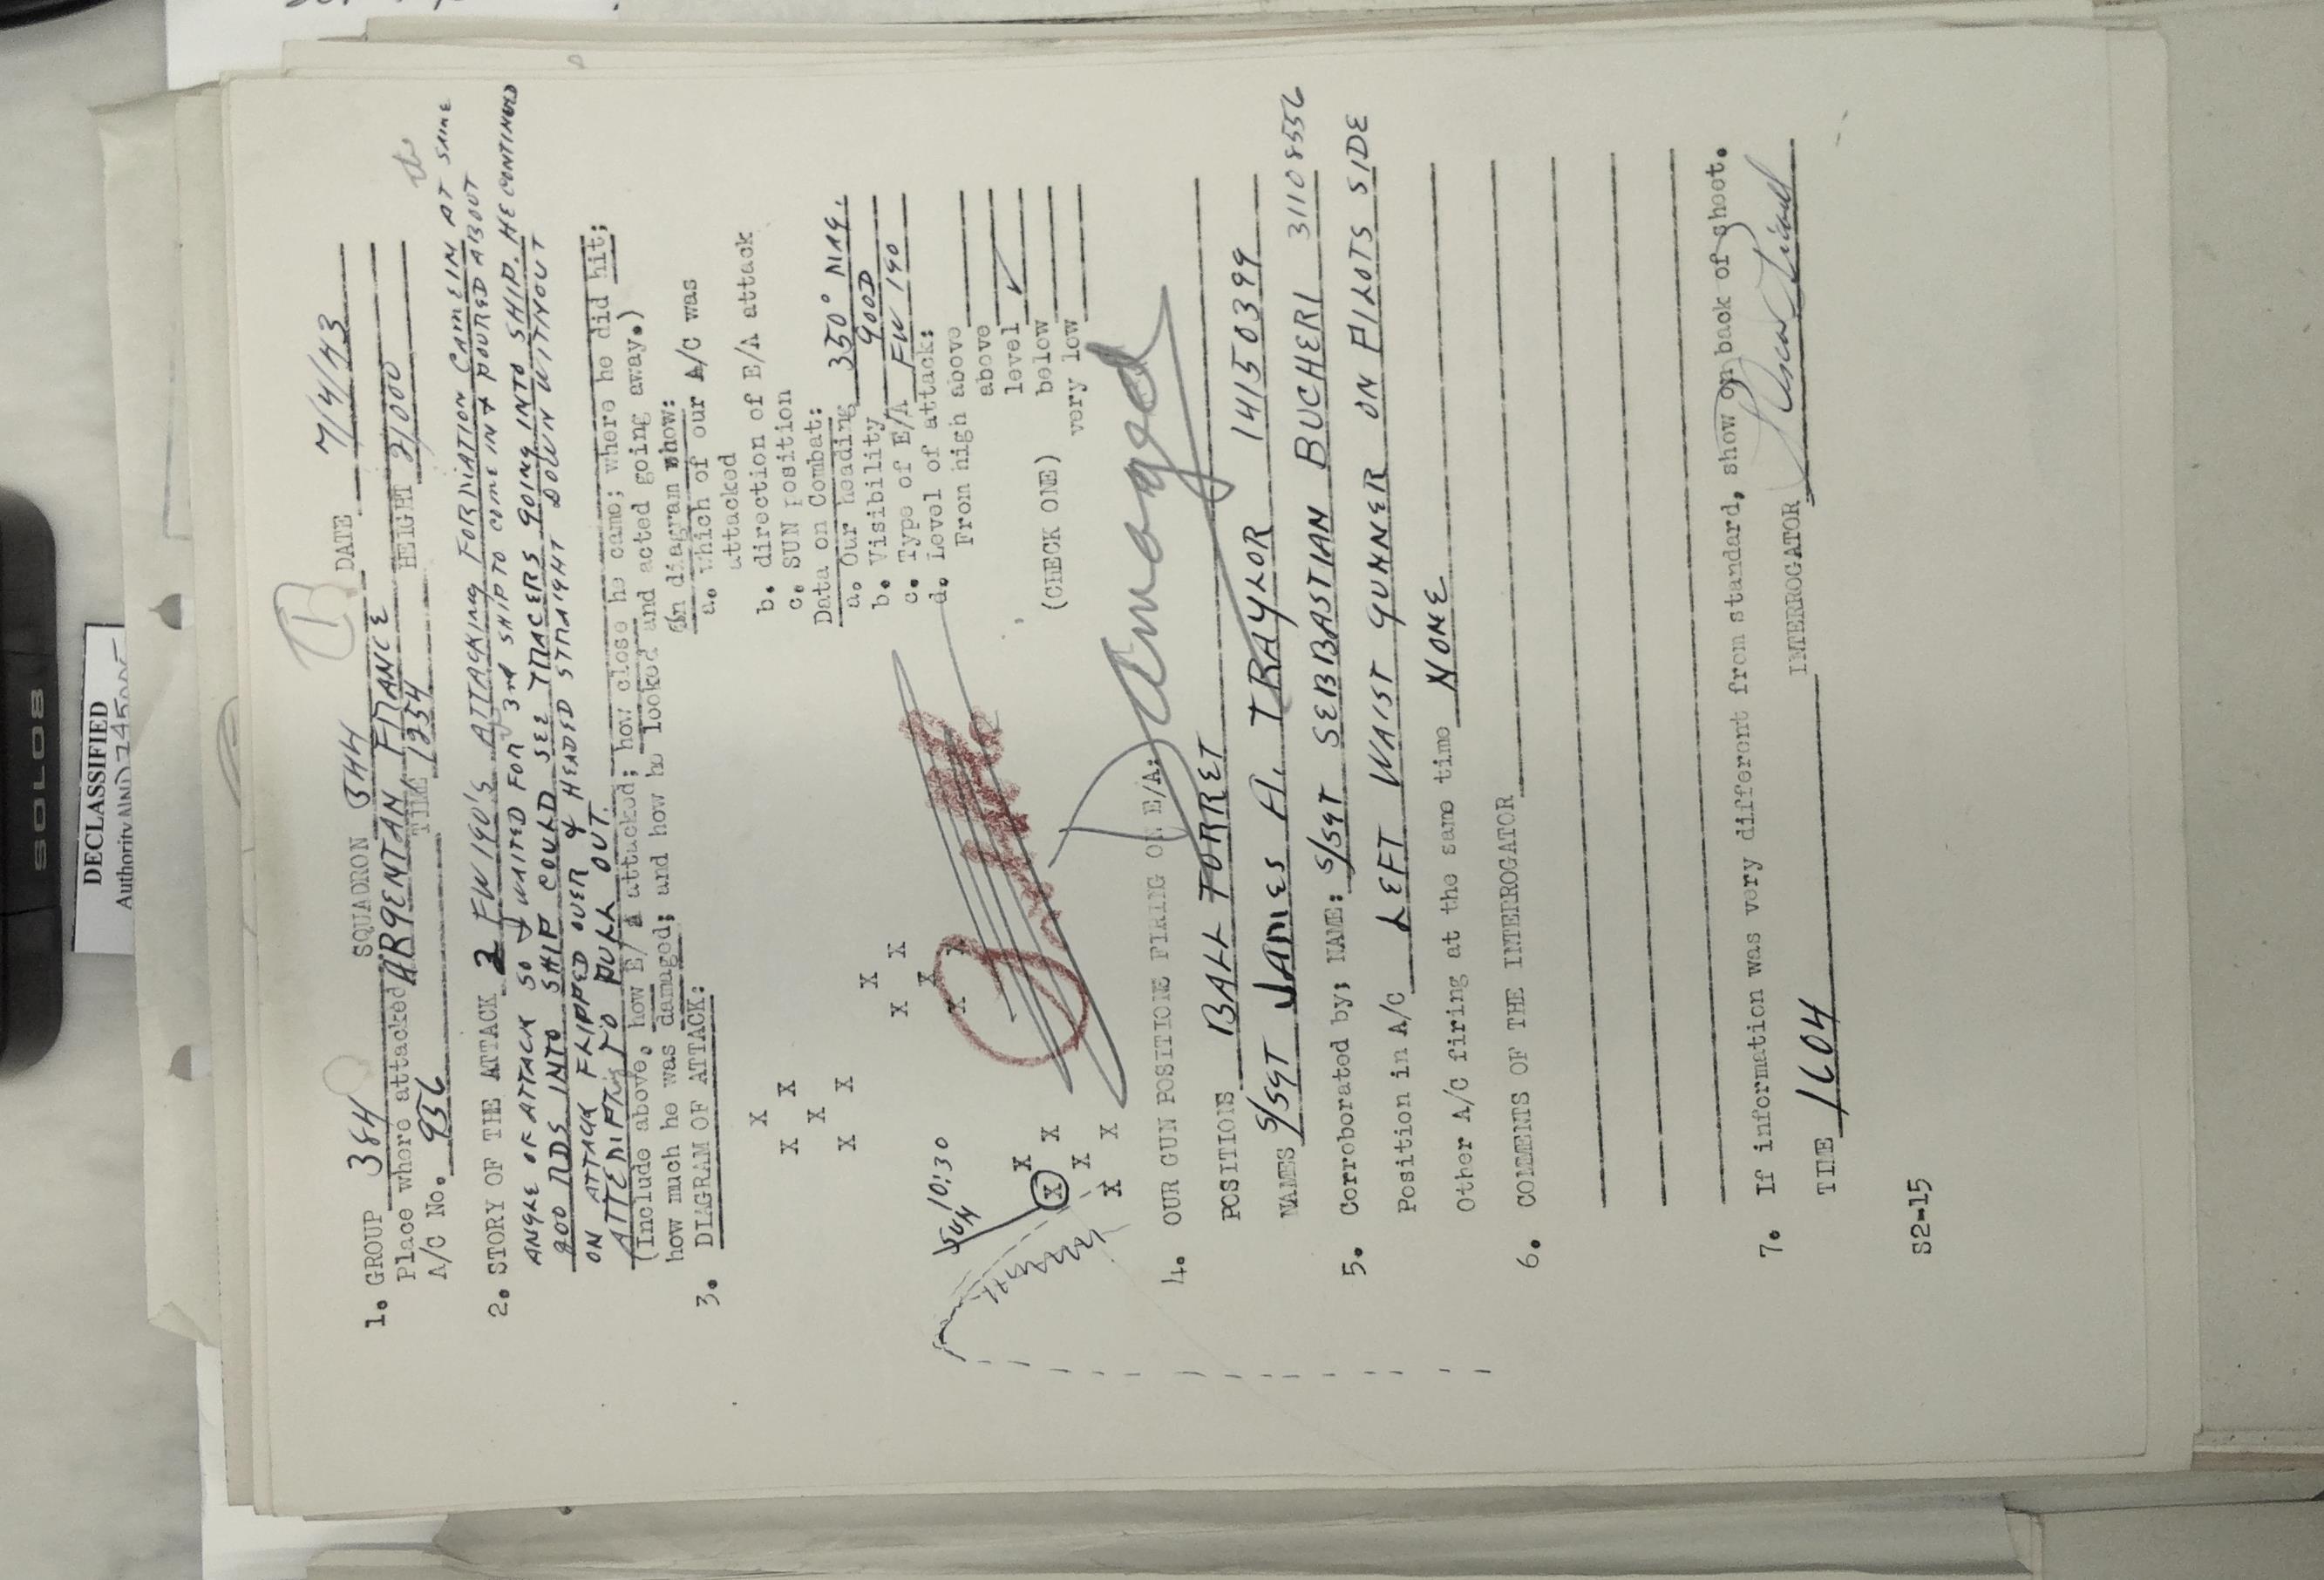 SOLO8
DECLASSIFIED
Authority NND 745005
B
1. GROUP 384 SQUADRON 544 DATE 7/4/43
Place where attacked ARGENTAN FRANCE
A/C No. 936 TIME 1254 HEIGHT 21000
2. STORY OF THE ATTACK 2 FW 190'S ATTACKING FORMATION CAME IN AT SAME
ANGLE OF ATTACK SO WAITED FOR 3rd SHIP TO COME IN & POURED ABOUT
200 RDS INTO SHIP COULD SEE TRACERS GOING INTO SHIP. HE CONTINUED
ON ATTACK FLIPPED OVER & HEADED STRAIGHT DOWN WITHOUT
ATTEMPTING TO PULL OUT.
(Include above, how E/A attacked; how close he came; where he did hit;
how much he was damaged; and how he looked and acted going away.)
3. DIAGRAM OF ATTACK:
In diagram show:
a. which of our A/C was
attacked
b. direction of E/A attack
c. SUN position
Data on Combat:
a. Our heading 350° MAG.
b. Visibility GOOD
c. Type of E/A FW 190
d. Level of attack:
From high above
above
level ✓
(CHECK ONE) below
very low
X X X X X X X X
X X X X X X
X X X X X X X
SUN 10:30
Damaged
4. OUR GUN POSITIONS FIRING ON E/A:
POSITIONS BALL TORRET
NAMES S/SGT JAMES A. TRAYLOR 14150399
5. Corroborated by; NAME: S/SGT SEBBASTIAN BUCHERI 31108556
Position in A/C LEFT WAIST GUNNER ON PILOTS SIDE
Other A/C firing at the same time NONE
6. COMMENTS OF THE INTERROGATOR
7. If information was very different from standard, show on back of shoot.
TIME 1604 INTERROGATOR
S2-15